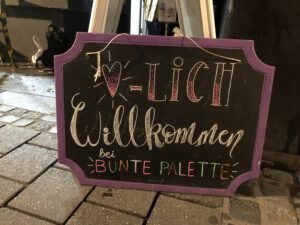 ♥-LICH
Willkommen
bei
BUNTE PALETTE